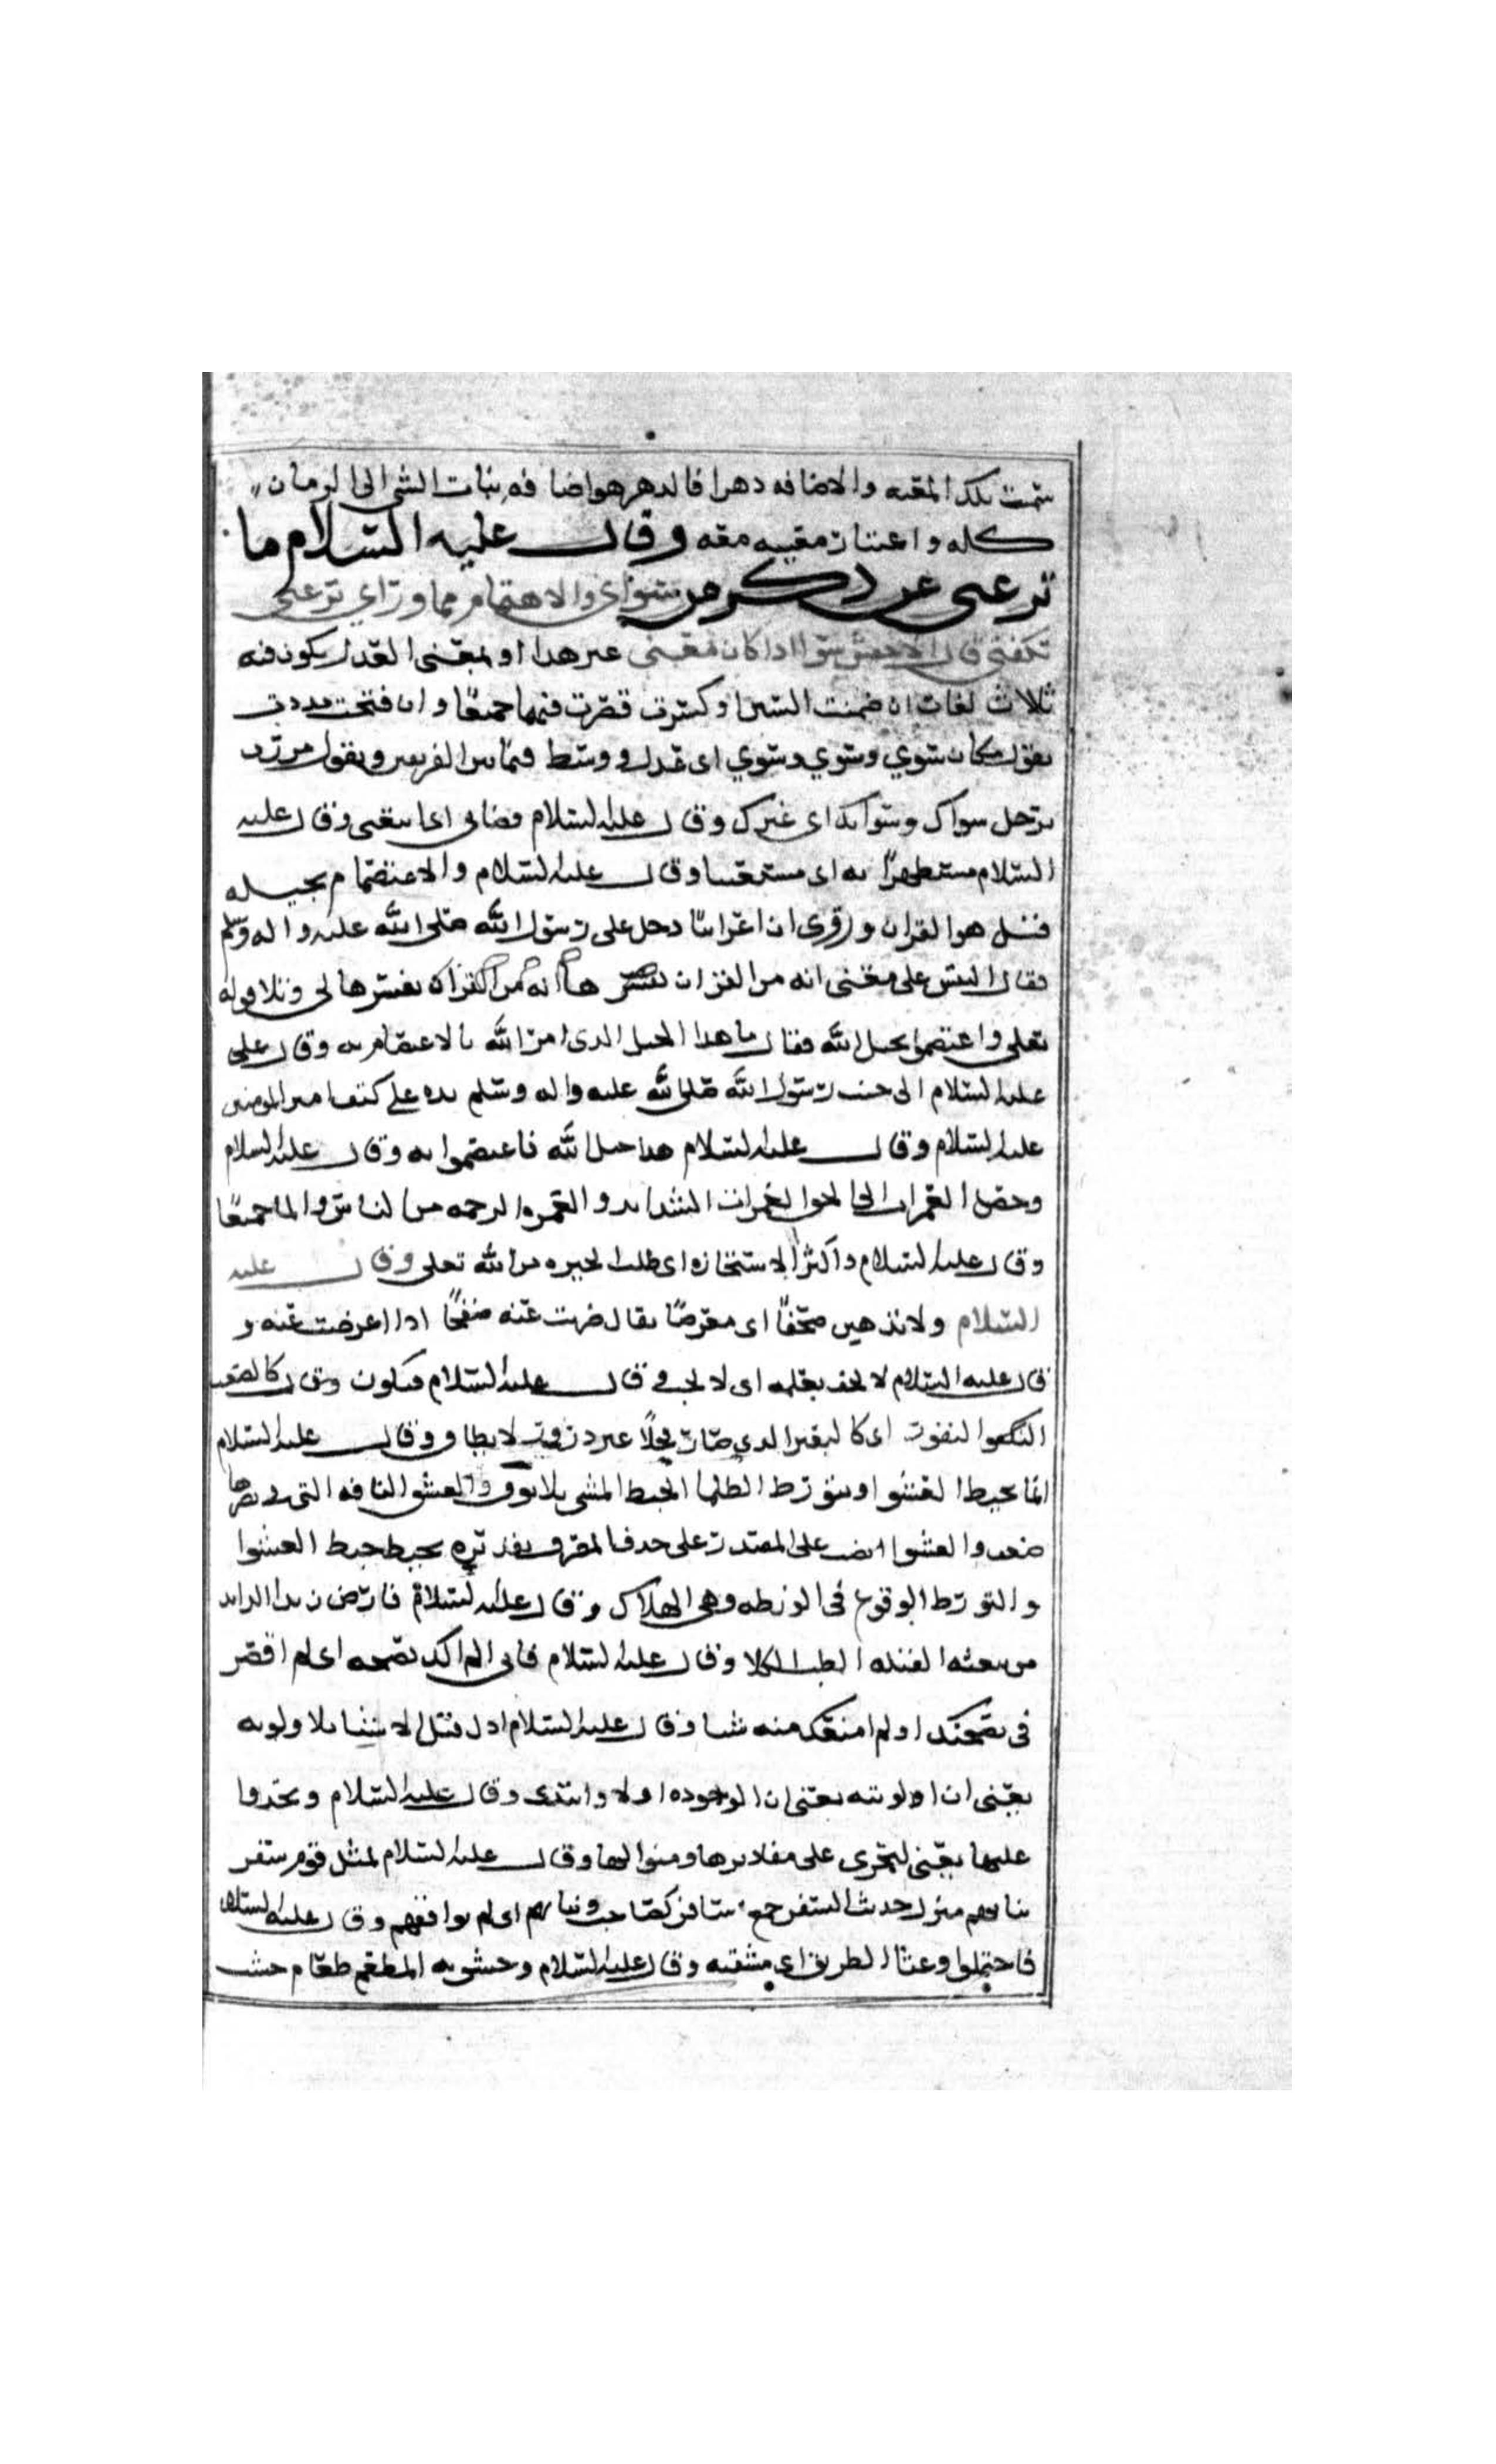 سميت تلك المعيه والاضافه دهرا فالدهر هو اضافه ثبات الشي الى الزمان
كله واعتبار معيبه معه وقال عليه السلام ما
ترعني عن ذكر من سواي والاهتمام مما وراي ترعني
تكفني قال الاخفش سوا اذا كان بمعنى غير هذا او بمعنى العدل يكون فيه
ثلاث لغات ان ضممت السين او كسرت قصرت فيهما جميعا وان فتحت مددت
يقول مكان سوي وسوي وسوي اى عدل و وسط فيما بين الفريقين ويقول مررت
برجل سواك وسوايك اى غيرك وقال عليه السلام فضانى اى ما يبقى وقال عليه
السلام مستظهرا به اى مستعينا وقال عليه السلام والاعتصام بحبله
فقيل هو القران و روى ان اعرابيا دخل على رسول الله صلى الله عليه واله وسلم
فقال التبس على معنى انه من القران يفسرها انه من القران يفسرها لى وتلا قوله
تعلى واعتصموا بحبل الله فقال ما هذا الحبل الذى امر الله بالاعتصام به وقال على
عليه السلام الى جنب رسول الله صلى الله عليه واله وسلم يده على كتف امير المومنين
عليه السلام وقال عليه السلام هذا حبل الله فاعتصموا به وقال عليه السلام
وخض الغمرات الى الحق الغمرات الشدايد والغمره الزحمه من الناس والما جميعا
وقال عليه السلام واكثر الاستخاره اى طلب الخيره من الله تعلى وقال عليه
السلام ولا تذهبن صفحا اى معرضا يقال ضربت عنه صفحا اذا اعرضت عنه و
قال عليه السلام لا يحف بعلمه اى لا يجب وقال عليه السلام فيكون كالصعب
النفور اى كالبعير الذى صار فحلا غير لا يطا وقال عليه السلام
انما يخبط العشوا او يتورط الظلما الخبط المشى بلا توق والعشوا الناقه التى فى بصرها
ضعف والعشوا نصب على المصدر على حذف المعروف تقديره يخبط خبط العشوا
والتورط الوقوع فى الورطه وهى الهلاك وقال عليه السلام فارض به رايدا الرايد
من يبعثه القبيله لطلب الكلا وقال عليه السلام فانى لم الك نصيحه اى لم اقصر
فى نصيحتك او لم امنعك منه شيا وقال عليه السلام اول قبل الاشيا بلا اوليه
يعنى ان اوليته يعنى ان لوجوده اولا وابتدى وقال عليه السلام وتحذوا
عليها يعنى لتجرى على مقاديرها ومنوالها وقال عليه السلام لمثل قوم سفر
نبا بهم منزل جدب السفر جمع سافر كصاحب ونبا بهم اى لم يوافقهم وقال عليه السلام
فاحتملوا وعثا الطريق اى مشقته وقال عليه السلام وخشوبه المطعم طعام خشب